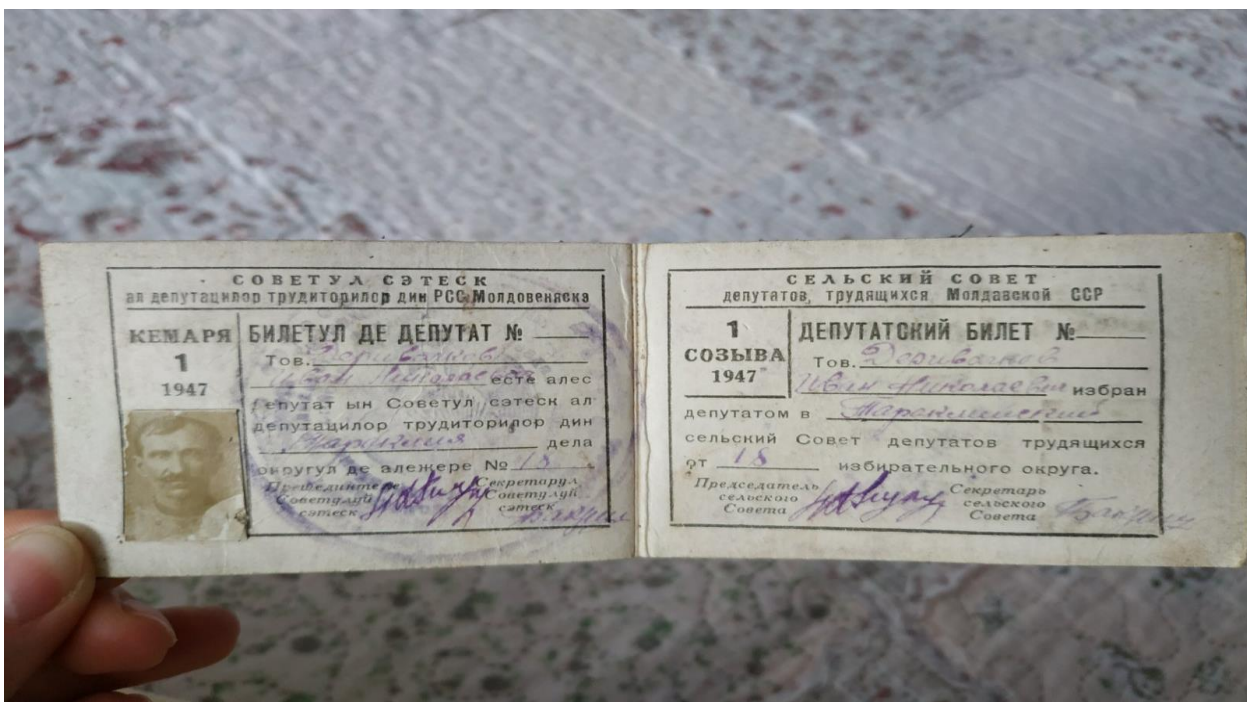 СОВЕТУЛ СЭТЕСК
ал депутацилор трудиторилор дин РСС Молдовеняскэ
КЕМАРЯ
1
1947
БИЛЕТУЛ ДЕ ДЕПУТАТ №
Тов.
Иван Николаевич есте алес
депутат ын Советул сэтеск ал
депутацилор трудиторилор дин
Тараклия дела
округул де алежере № 18.
Прешединтеле Секретарул
Советулуй Советулуй
сэтеск сэтеск
СЕЛЬСКИЙ СОВЕТ
депутатов, трудящихся Молдавской ССР
1
СОЗЫВА
1947
ДЕПУТАТСКИЙ БИЛЕТ №
Тов.
Иван Николаевич избран
депутатом в Тараклийский
сельский Совет депутатов трудящихся
от 18 избирательного округа.
Председатель Секретарь
сельского сельского
Совета Совета